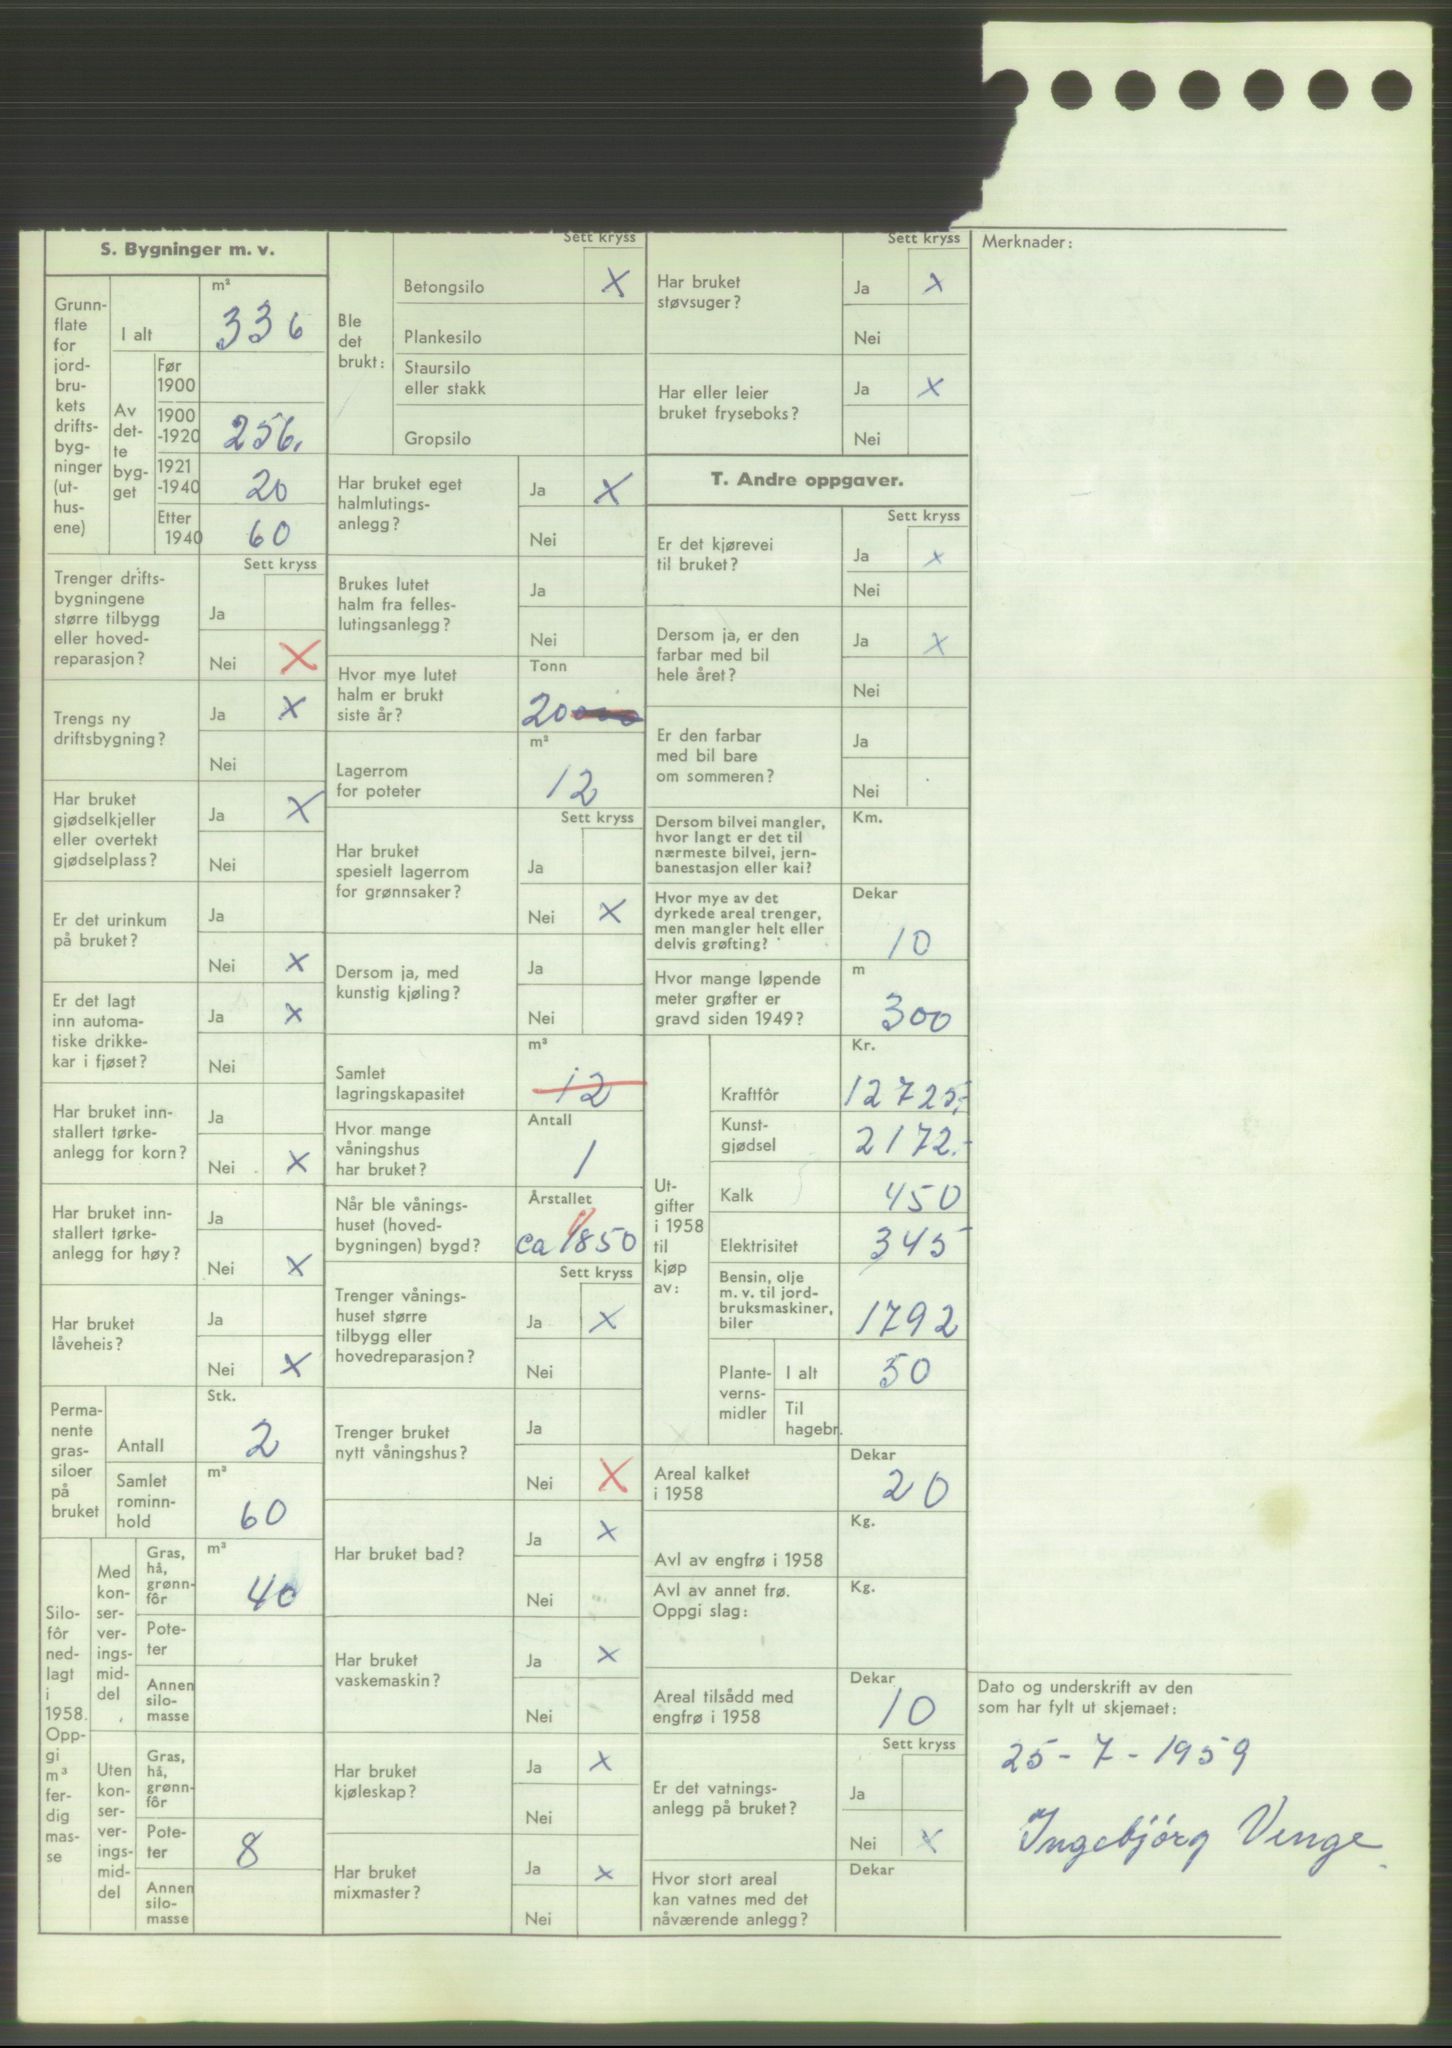 S. Bygninger m. v.
Grunn-
flate
for
jord-
bru-
kets
drifts-
byg-
ninger
(ut-
hus-
ene)
m²
I alt 336
Av
det-
te
byg-
get
Før
1900
1900
-1920 256.
1921
-1940 20
Etter
1940 60
Sett kryss
Trenger drifts-
bygningene
større tilbygg
eller hoved-
reparasjon?
Ja
Nei X
Trengs ny
driftsbygning?
Ja X
Nei
Har bruket
gjødselkjeller
eller overtekt
gjødselplass?
Ja X
Nei
Er det urinkum
på bruket?
Ja
Nei X
Er det lagt
inn automa-
tiske drikke-
kar i fjøset?
Ja X
Nei
Har bruket inn-
stallert tørke-
anlegg for korn?
Ja
Nei X
Har bruket inn-
stallert tørke-
anlegg for høy?
Ja
Nei X
Har bruket
låveheis?
Ja
Nei X
Perma-
nente
gras-
siloer
på
bruket
Stk.
Antall 2
Samlet
rominn-
hold
m³
60
Silo-
fôr
ned-
lagt
i
1958.
Opp-
gi
m³
fer-
dig
mas-
se
Med
kon-
ser-
ver-
ings-
mid-
del
Gras,
hå,
grønn-
fôr
m³
40
Pote-
ter
Annen
silo-
masse
Uten
kon-
ser-
ver-
ings-
mid-
del
Gras,
hå,
grønn-
fôr
Pote-
ter 8
Annen
silo-
masse
Sett kryss
Ble
det
brukt:
Betongsilo X
Plankesilo
Staursilo
eller stakk
Gropsilo
Har bruket eget
halmlutings-
anlegg?
Ja X
Nei
Brukes lutet
halm fra felles-
lutingsanlegg?
Ja
Nei
Hvor mye lutet
halm er brukt
siste år?
Tonn
20
Lagerrom
for poteter
m³
12
Sett kryss
Har bruket
spesielt lagerrom
for grønnsaker?
Ja
Nei X
Dersom ja, med
kunstig kjøling?
Ja
Nei
Samlet
lagringskapasitet
m³
12
Hvor mange
våningshus
har bruket?
Antall
1
Når ble vånings-
huset (hoved-
bygningen) bygd?
Årstallet
ca 1850
Sett kryss
Trenger vånings-
huset større
tilbygg eller
hovedreparasjon?
Ja X
Nei
Trenger bruket
nytt våningshus?
Ja
Nei X
Har bruket bad?
Ja X
Nei
Har bruket
vaskemaskin?
Ja X
Nei
Har bruket
kjøleskap?
Ja X
Nei
Har bruket
mixmaster?
Ja X
Nei
Sett kryss
Har bruket
støvsuger?
Ja X
Nei
Har eller leier
bruket fryseboks?
Ja X
Nei
T. Andre oppgaver.
Sett kryss
Er det kjørevei
til bruket?
Ja X
Nei
Dersom ja, er den
farbar med bil
hele året?
Ja X
Nei
Er den farbar
med bil bare
om sommeren?
Ja
Nei
Dersom bilvei mangler,
hvor langt er det til
nærmeste bilvei, jern-
banestasjon eller kai?
Km.
Hvor mye av det
dyrkede areal trenger,
men mangler helt eller
delvis grøfting?
Dekar
10
Hvor mange løpende
meter grøfter er
gravd siden 1949?
m
300
Ut-
gifter
i 1958
til
kjøp
av:
Kr.
Kraftfôr 12725,-
Kunst-
gjødsel 2172.-
Kalk 450
Elektrisitet 345
Bensin, olje
m. v. til jord-
bruksmaskiner,
biler 1792
Plante-
verns-
midler
I alt 50
Til
hagebr.
Areal kalket
i 1958
Dekar
20
Avl av engfrø i 1958
Kg.
Avl av annet frø.
Oppgi slag:
Kg.
Areal tilsådd med
engfrø i 1958
Dekar
10
Sett kryss
Er det vatnings-
anlegg på bruket?
Ja
Nei X
Hvor stort areal
kan vatnes med det
nåværende anlegg?
Dekar
Merknader:
Dato og underskrift av den
som har fylt ut skjemaet:
25-7-1959
Ingebjörg Venge